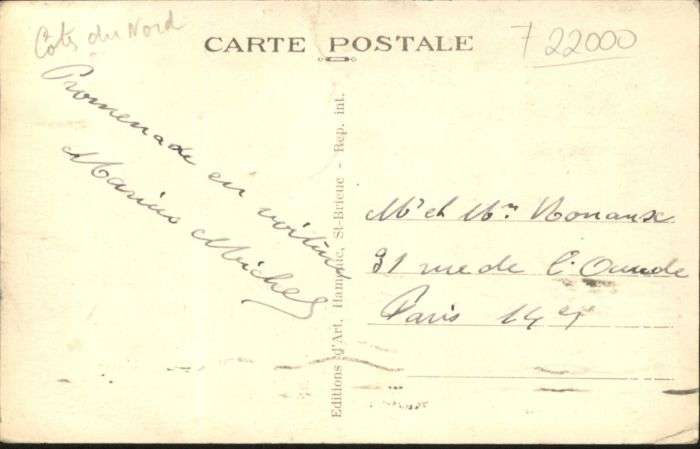 Côtes du Nord
CARTE POSTALE
22000
Promenade en voiture
Marius Michel
Editions d'Art, St-Brieuc - Rep. int.
Mr et Mm
31 rue de l'
Paris 14e